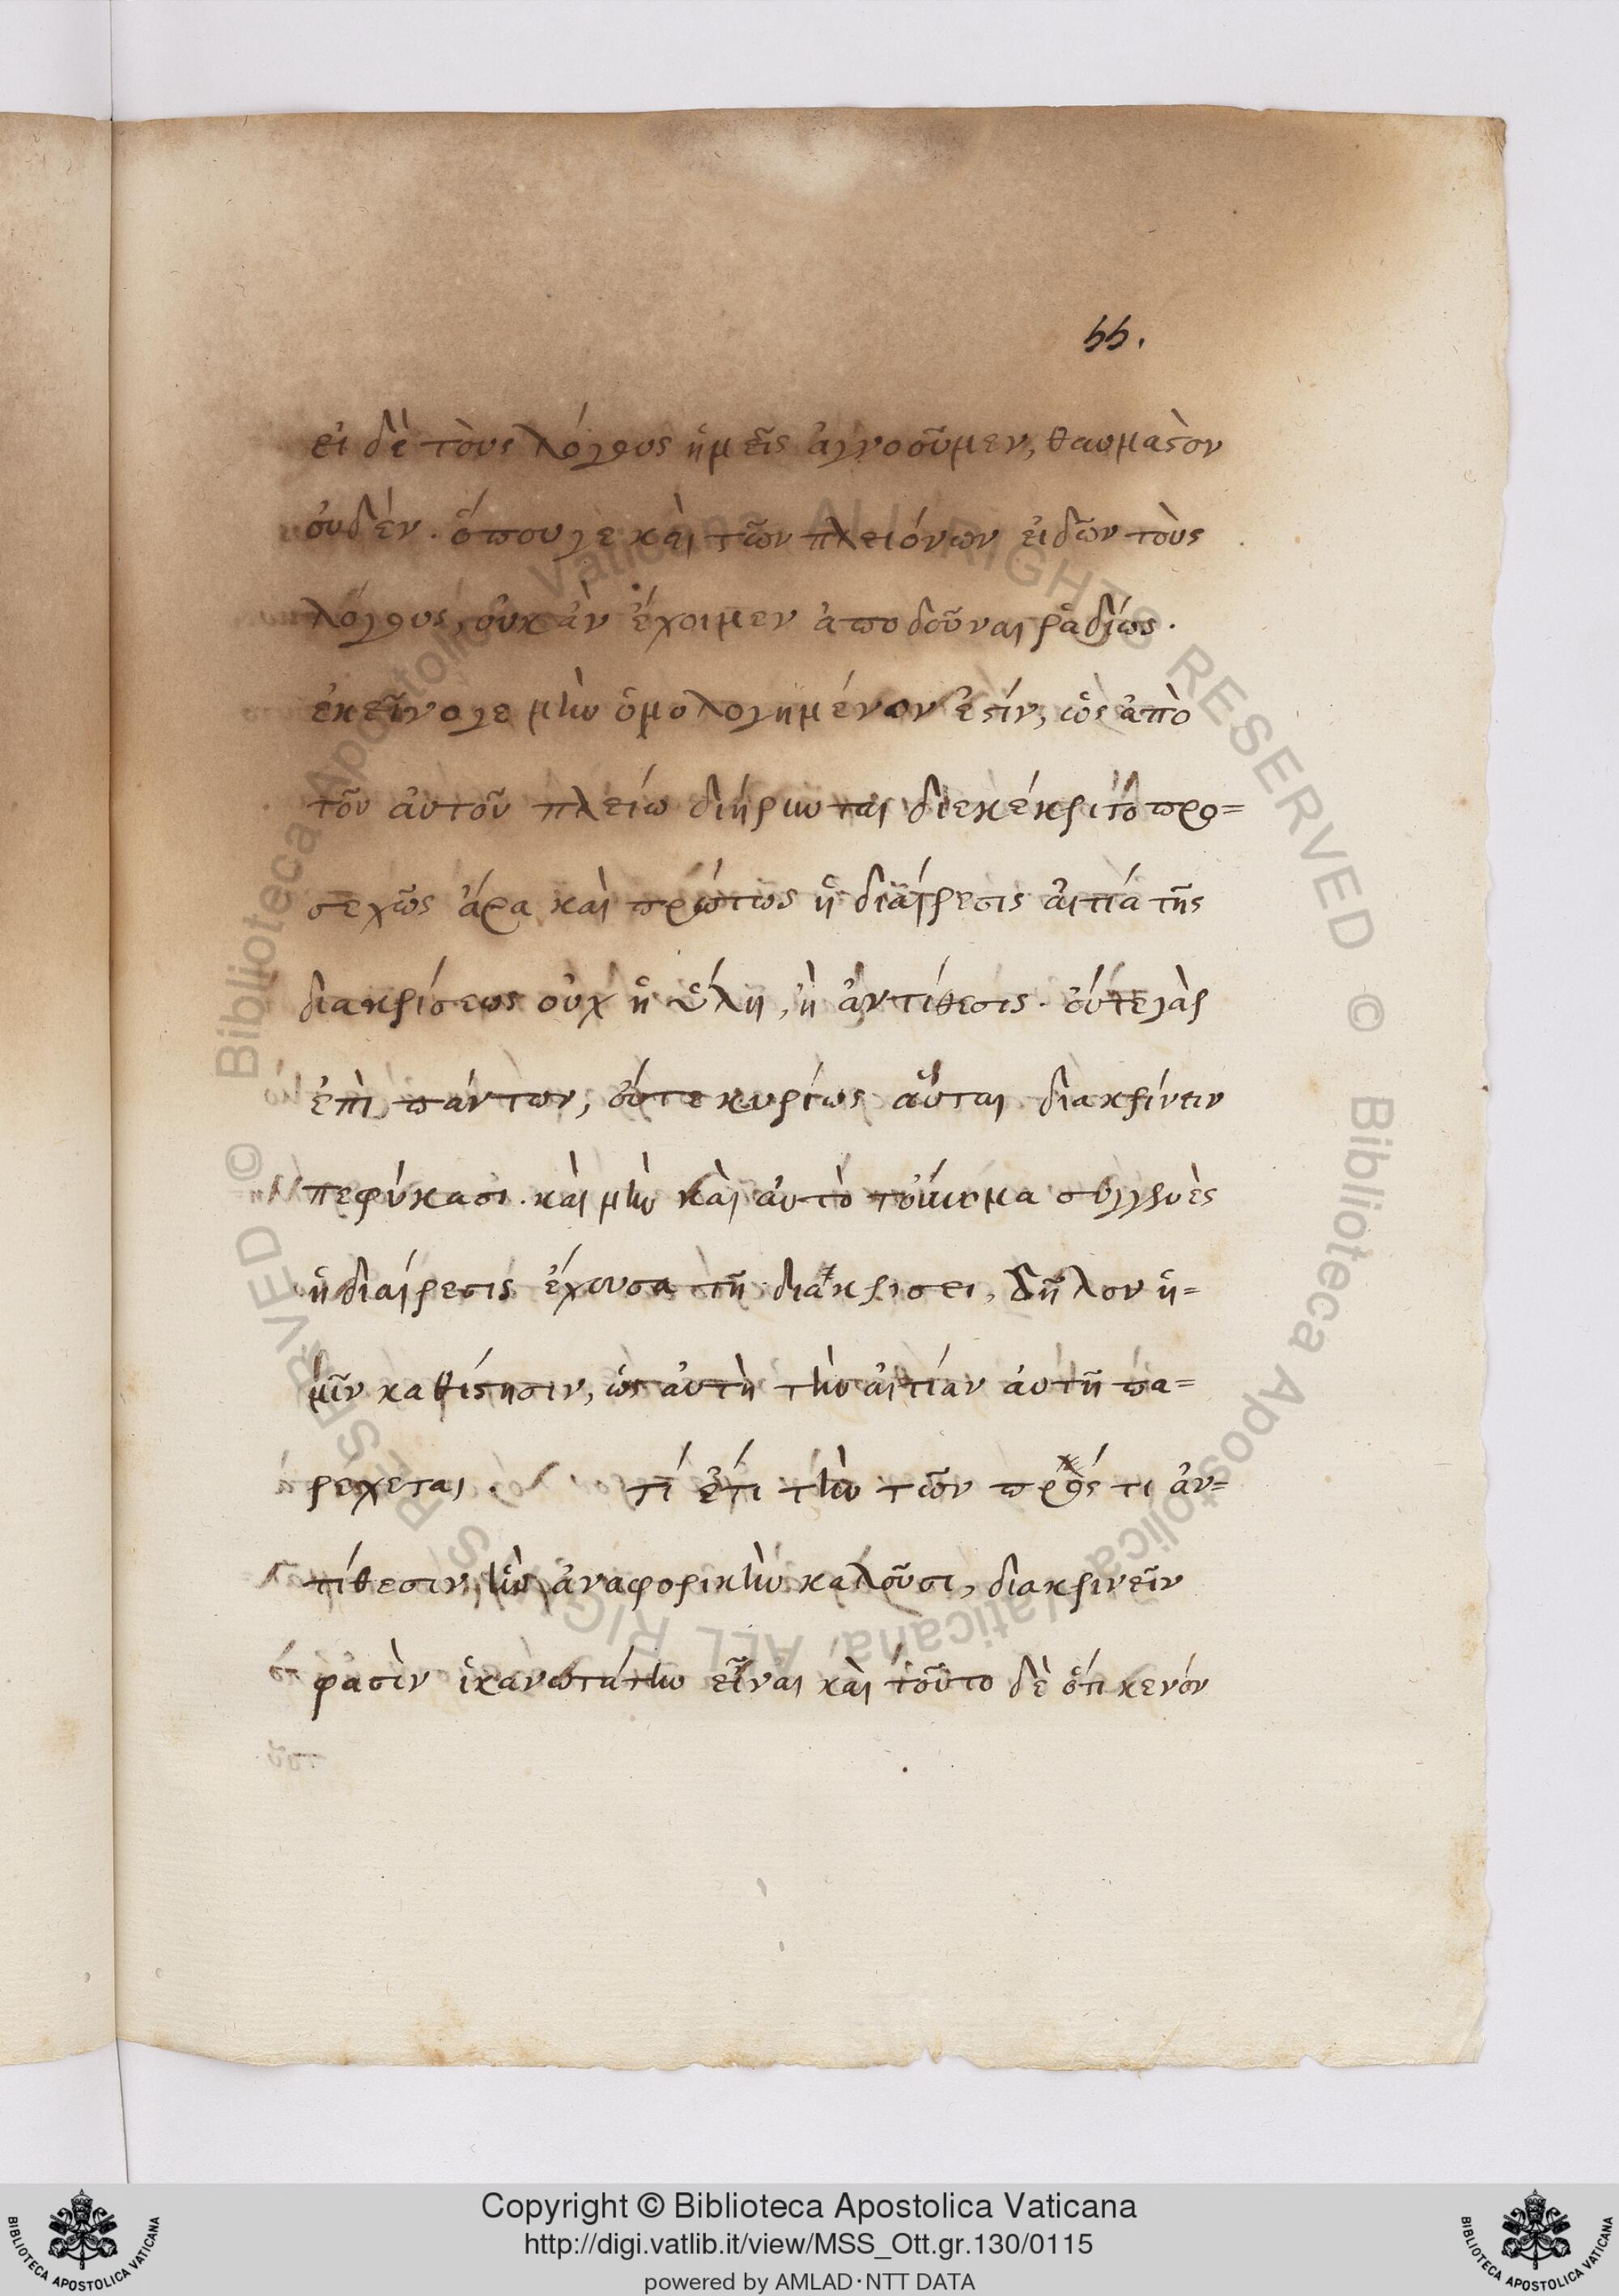 55.
εἰ δὲ τοὺς λόγους ἡμεῖς ἀγνοοῦμεν, θαυμαστὸν
οὐδέν. ὅπου γε καὶ τῶν πλειόνων εἰδῶν τοὺς
λόγους, οὐκ ἂν ἔχοιμεν ἀποδοῦναι ῥᾳδίως.
ἐκεῖνό γε μὴν ὁμολογημένον ἐστίν, ὡς ἀπὸ
τοῦ αὐτοῦ πλείω διῄρηνται διεκέκριτο προ=
σεχῶς ἄρα καὶ πρώτως ἡ διαίρεσις αἰτία τῆς
διακρίσεως οὐχ ἡ ὕλη, ἢ ἀντίθεσις. οὔτε γὰρ
ἐπὶ πάντων, οὔτε κυρίως αὗται διακρίνειν
πεφύκασι. καὶ μὴν καὶ αὐτὸ συγγενὲς
ἡ διαίρεσις ἔχουσα τῇ διακρίσει, δῆλον ἡ=
μῖν καθίστησιν, ὡς αὐτὴ τὴν αἰτίαν αὐτῇ πα=
ρέχεται. τί ἔτι τὴν τῶν πρός τι ἀν=
τίθεσιν, ἣν ἀναφορικὴν καλοῦσι, διακρινεῖν
φασὶν ἱκανωτάτην εἶναι καὶ τοῦτο δὲ ὅτι κενόν
Copyright © Biblioteca Apostolica Vaticana
http://digi.vatlib.it/view/MSS_Ott.gr.130/0115
powered by AMLAD·NTT DATA
BIBLIOTECA APOSTOLICA VATICANA
BIBLIOTECA APOSTOLICA VATICANA
© Biblioteca Apostolica Vaticana, ALL RIGHTS RESERVED
© Biblioteca Apostolica Vaticana, ALL RIGHTS RESERVED